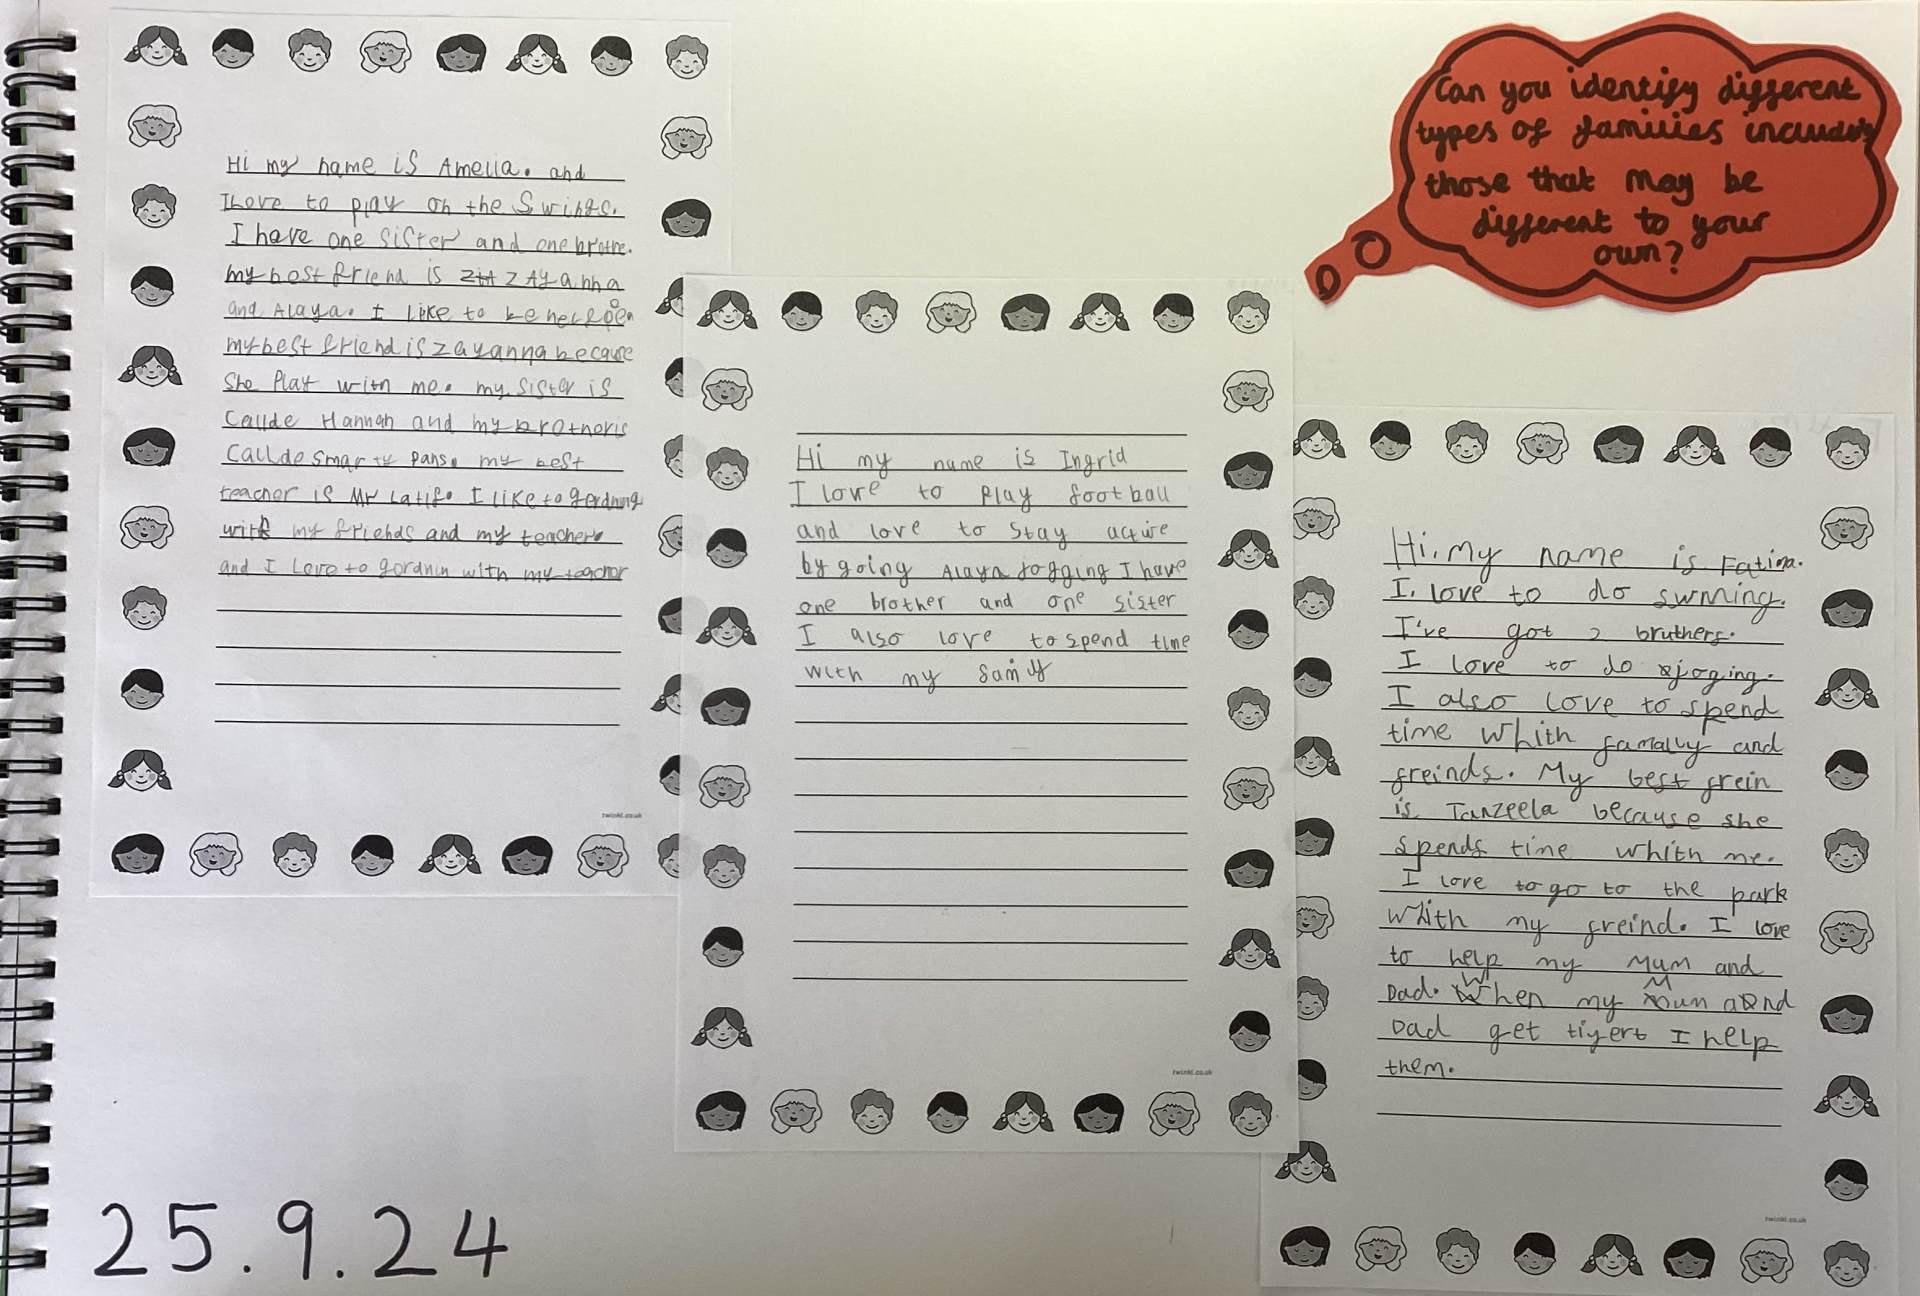 Hi my name is Amelia. and
I Love to play on the Swings.
I have one sister and one brothe.
my best friend is ZAyanna
and Alaya. I like to be
my best friend is zayanna because
She Play with me. my sister is
Callde Hannah and my brotheris
Callde smarty pans. my best
teacher is Mr Latif. I like to gerdning
with my friends and my teacher.
and I Love to gordnin with my teacher
twinkl.co.uk
Hi my name is Ingrid
I love to play football
and love to stay active
by going Alaya Jogging I have
one brother and one sister
I also love to spend time
with my
twinkl.co.uk
Can you identify different
types of families including
those that may be
different to your
own?
Hi. My name is Fatima.
I. love to do swming.
I've got 2 bruthers.
I love to do joging.
I also love to spend
time whith famally and
freinds. My best frein
is Tanzeela because she
spends time whith me.
I love to go to the park
whith my freind. I love
to help my Mum and
Dad. When my Mum and
Dad get tiyert I help
them.
twinkl.co.uk
25.9.24